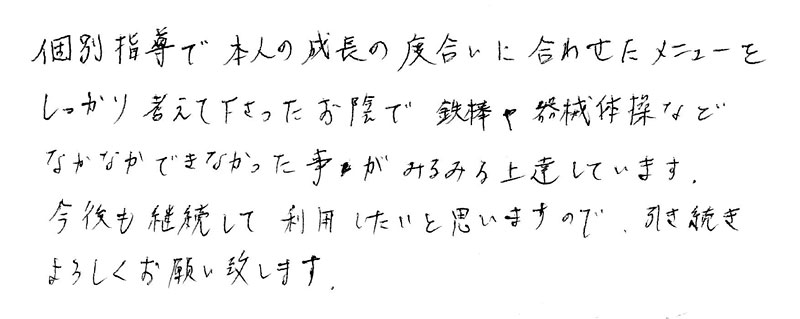 個別指導で本人の成長の度合いに合わせたメニューを
しっかり考えて下さったお陰で鉄棒や器械体操など
なかなかできなかった事が みるみる上達しています.
今後も継続して利用したいと思いますので、引き続き
よろしくお願い致します.